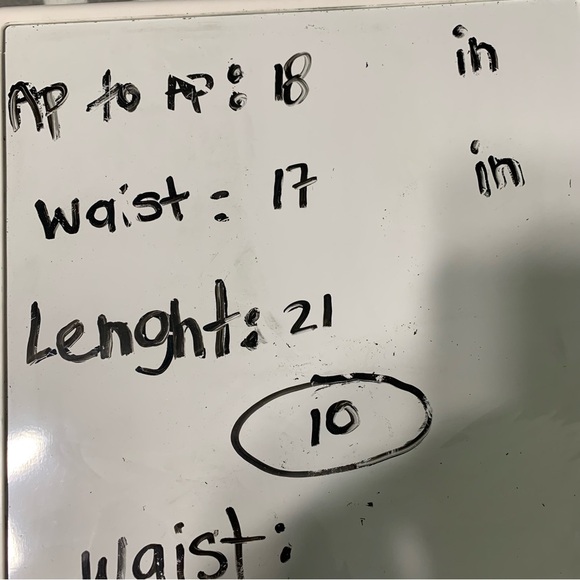 AP to AP: 18 in
Waist: 17 in
Lenght: 21
10
Waist: